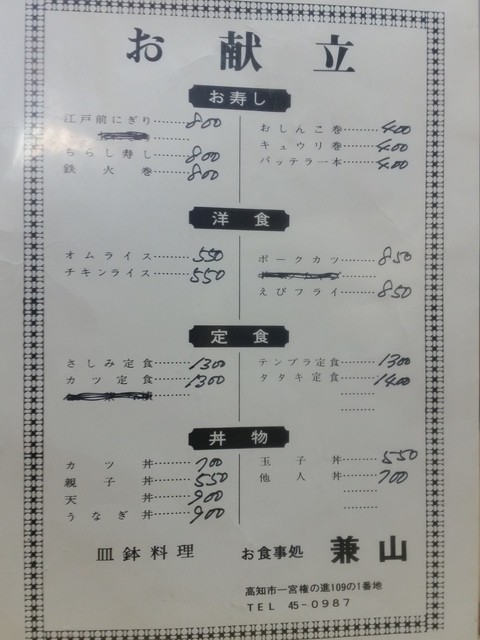 お献立
お寿し
江戸前にぎり………800
ちらし寿し………800
鉄火巻………800
おしんこ巻………400
キュウリ巻………400
バッテラ一本………400
洋食
オムライス………550
チキンライス………550
ポークカツ………850
えびフライ………850
定食
さしみ定食………1300
カツ定食………1300
テンプラ定食………1300
タタキ定食………1400
丼物
カツ丼………700
親子丼………550
天丼………900
うなぎ丼………900
玉子丼………550
他人丼………700
皿鉢料理
お食事処 兼山
高知市一宮権の進109の1番地
TEL 45-0987